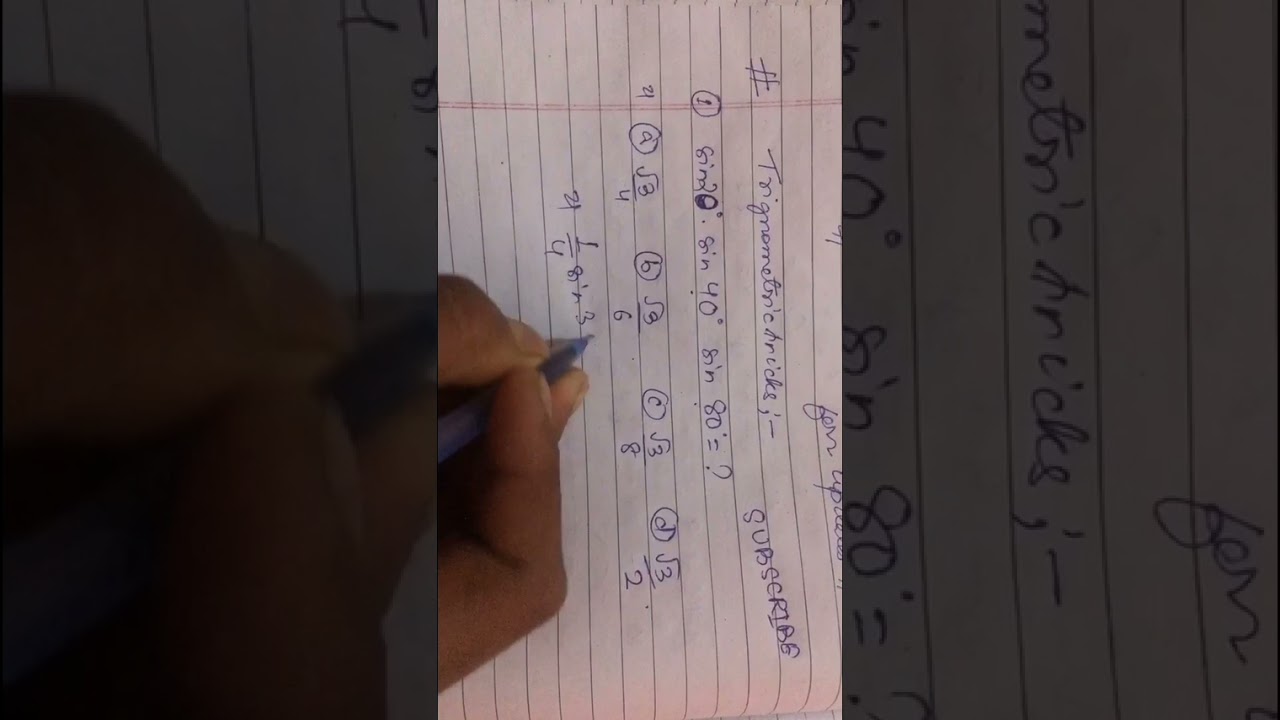 for
# Trignometric tricks ;– SUBSCRIBE
① sin20°. sin 40° sin 80° = ?
ⓐ √3/4 ⓑ √3/6 ⓒ √3/8 ⓓ √3/2
1/4 sin 3